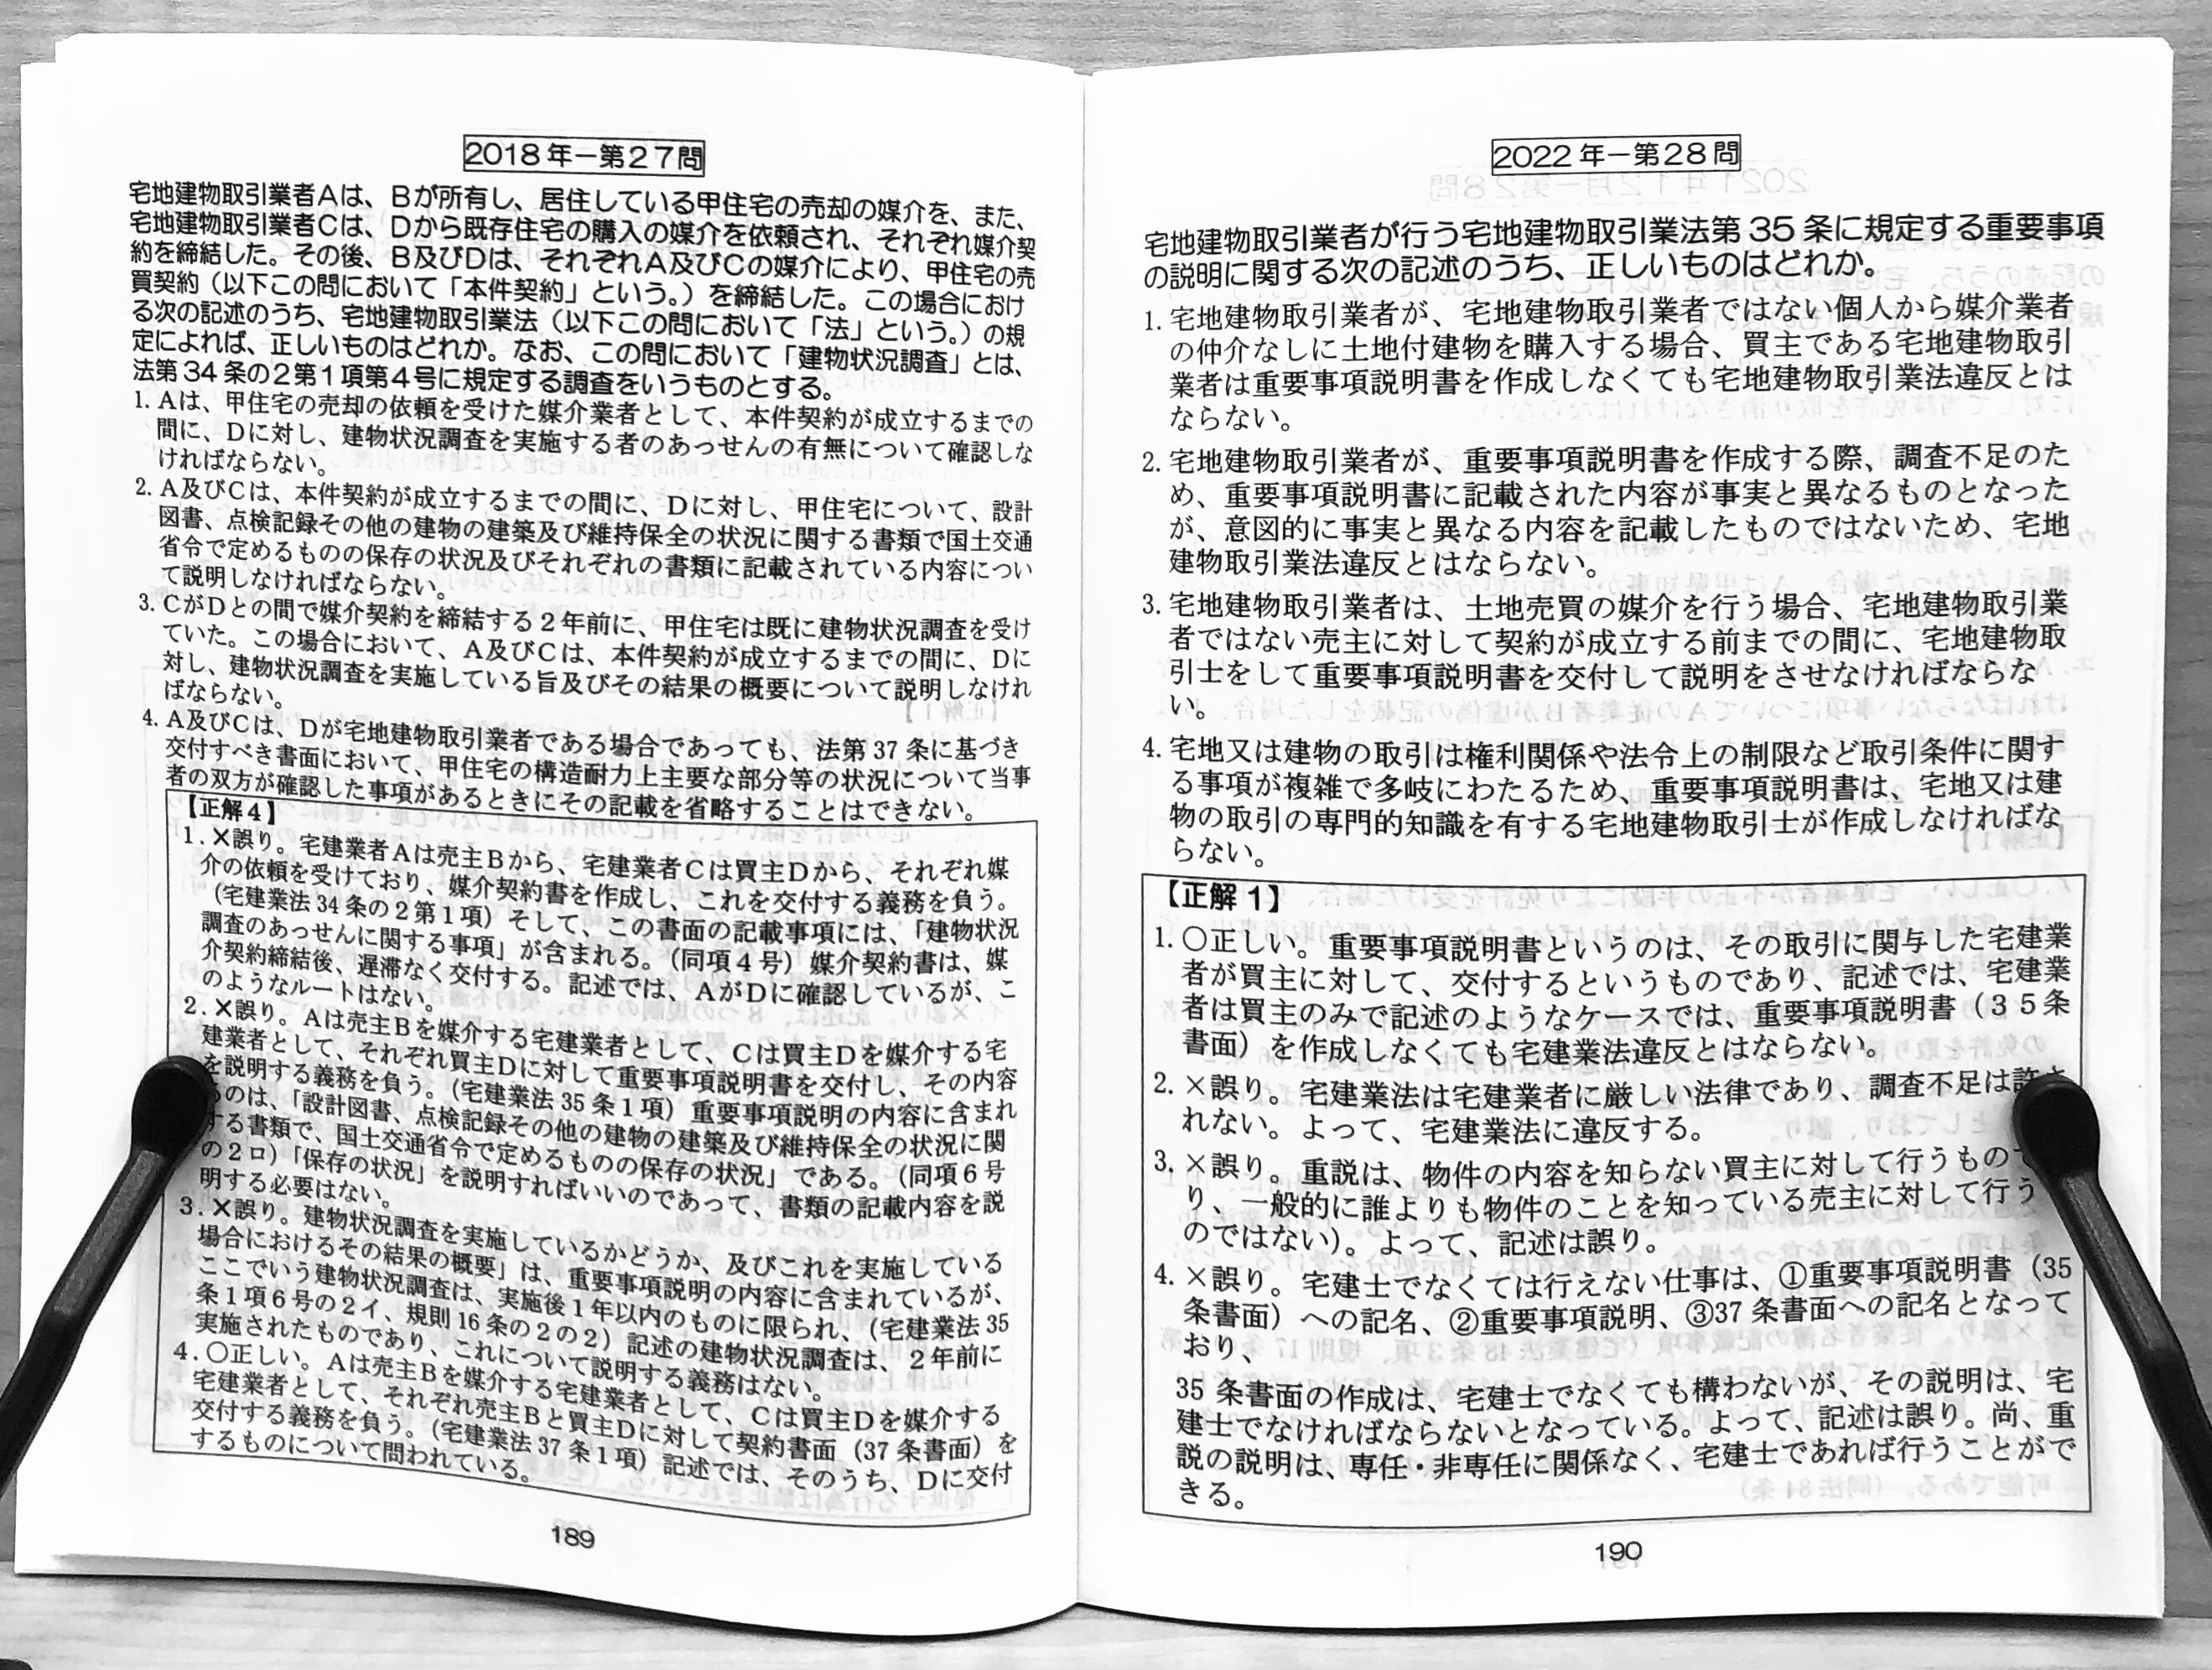 2018年－第27問
宅地建物取引業者Aは、Bが所有し、居住している甲住宅の売却の媒介を、また、
宅地建物取引業者Cは、Dから既存住宅の購入の媒介を依頼され、それぞれ媒介契
約を締結した。その後、B及びDは、それぞれA及びCの媒介により、甲住宅の売
買契約（以下この問において「本件契約」という。）を締結した。この場合におけ
る次の記述のうち、宅地建物取引業法（以下この問において「法」という。）の規
定によれば、正しいものはどれか。なお、この問において「建物状況調査」とは、
法第34条の2第1項第4号に規定する調査をいうものとする。
1. Aは、甲住宅の売却の依頼を受けた媒介業者として、本件契約が成立するまでの
間に、Dに対し、建物状況調査を実施する者のあっせんの有無について確認しな
ければならない。
2. A及びCは、本件契約が成立するまでの間に、Dに対し、甲住宅について、設計
図書、点検記録その他の建物の建築及び維持保全の状況に関する書類で国土交通
省令で定めるものの保存の状況及びそれぞれの書類に記載されている内容につい
て説明しなければならない。
3. CがDとの間で媒介契約を締結する2年前に、甲住宅は既に建物状況調査を受け
ていた。この場合において、A及びCは、本件契約が成立するまでの間に、Dに
対し、建物状況調査を実施している旨及びその結果の概要について説明しなけれ
ばならない。
4. A及びCは、Dが宅地建物取引業者である場合であっても、法第37条に基づき
交付すべき書面において、甲住宅の構造耐力上主要な部分等の状況について当事
者の双方が確認した事項があるときにその記載を省略することはできない。
【正解4】
1. ×誤り。宅建業者Aは売主Bから、宅建業者Cは買主Dから、それぞれ媒
介の依頼を受けており、媒介契約書を作成し、これを交付する義務を負う。
（宅建業法34条の2第1項）そして、この書面の記載事項には、「建物状況
調査のあっせんに関する事項」が含まれる。（同項4号）媒介契約書は、媒
介契約締結後、遅滞なく交付する。記述では、AがDに確認しているが、こ
のようなルートはない。
2. ×誤り。Aは売主Bを媒介する宅建業者として、Cは買主Dを媒介する宅
建業者として、それぞれ買主Dに対して重要事項説明書を交付し、その内容
を説明する義務を負う。（宅建業法35条1項）重要事項説明の内容に含まれ
るのは、「設計図書、点検記録その他の建物の建築及び維持保全の状況に関
する書類で、国土交通省令で定めるものの保存の状況」である。（同項6号
の2ロ）「保存の状況」を説明すればいいのであって、書類の記載内容を説
明する必要はない。
3. ×誤り。建物状況調査を実施しているかどうか、及びこれを実施している
場合におけるその結果の概要」は、重要事項説明の内容に含まれているが、
ここでいう建物状況調査は、実施後1年以内のものに限られ、（宅建業法35
条1項6号の2イ、規則16条の2の2）記述の建物状況調査は、2年前に
実施されたものであり、これについて説明する義務はない。
4. ○正しい。Aは売主Bを媒介する宅建業者として、Cは買主Dを媒介する
宅建業者として、それぞれ売主Bと買主Dに対して契約書面（37条書面）を
交付する義務を負う。（宅建業法37条1項）記述では、そのうち、Dに交付
するものについて問われている。
189
2022年－第28問
宅地建物取引業者が行う宅地建物取引業法第35条に規定する重要事項
の説明に関する次の記述のうち、正しいものはどれか。
1. 宅地建物取引業者が、宅地建物取引業者ではない個人から媒介業者
の仲介なしに土地付建物を購入する場合、買主である宅地建物取引
業者は重要事項説明書を作成しなくても宅地建物取引業法違反とは
ならない。
2. 宅地建物取引業者が、重要事項説明書を作成する際、調査不足のた
め、重要事項説明書に記載された内容が事実と異なるものとなった
が、意図的に事実と異なる内容を記載したものではないため、宅地
建物取引業法違反とはならない。
3. 宅地建物取引業者は、土地売買の媒介を行う場合、宅地建物取引業
者ではない売主に対して契約が成立する前までの間に、宅地建物取
引士をして重要事項説明書を交付して説明をさせなければならな
い。
4. 宅地又は建物の取引は権利関係や法令上の制限など取引条件に関す
る事項が複雑で多岐にわたるため、重要事項説明書は、宅地又は建
物の取引の専門的知識を有する宅地建物取引士が作成しなければな
らない。
【正解1】
1. ○正しい。重要事項説明書というのは、その取引に関与した宅建業
者が買主に対して、交付するというものであり、記述では、宅建業
者は買主のみで記述のようなケースでは、重要事項説明書（35条
書面）を作成しなくても宅建業法違反とはならない。
2. ×誤り。宅建業法は宅建業者に厳しい法律であり、調査不足は許さ
れない。よって、宅建業法に違反する。
3. ×誤り。重説は、物件の内容を知らない買主に対して行うもので
り、一般的に誰よりも物件のことを知っている売主に対して行う
のではない）。よって、記述は誤り。
4. ×誤り。宅建士でなくては行えない仕事は、①重要事項説明書（35
条書面）への記名、②重要事項説明、③37条書面への記名となって
おり、
35条書面の作成は、宅建士でなくても構わないが、その説明は、宅
建士でなければならないとなっている。よって、記述は誤り。尚、重
説の説明は、専任・非専任に関係なく、宅建士であれば行うことがで
きる。
190